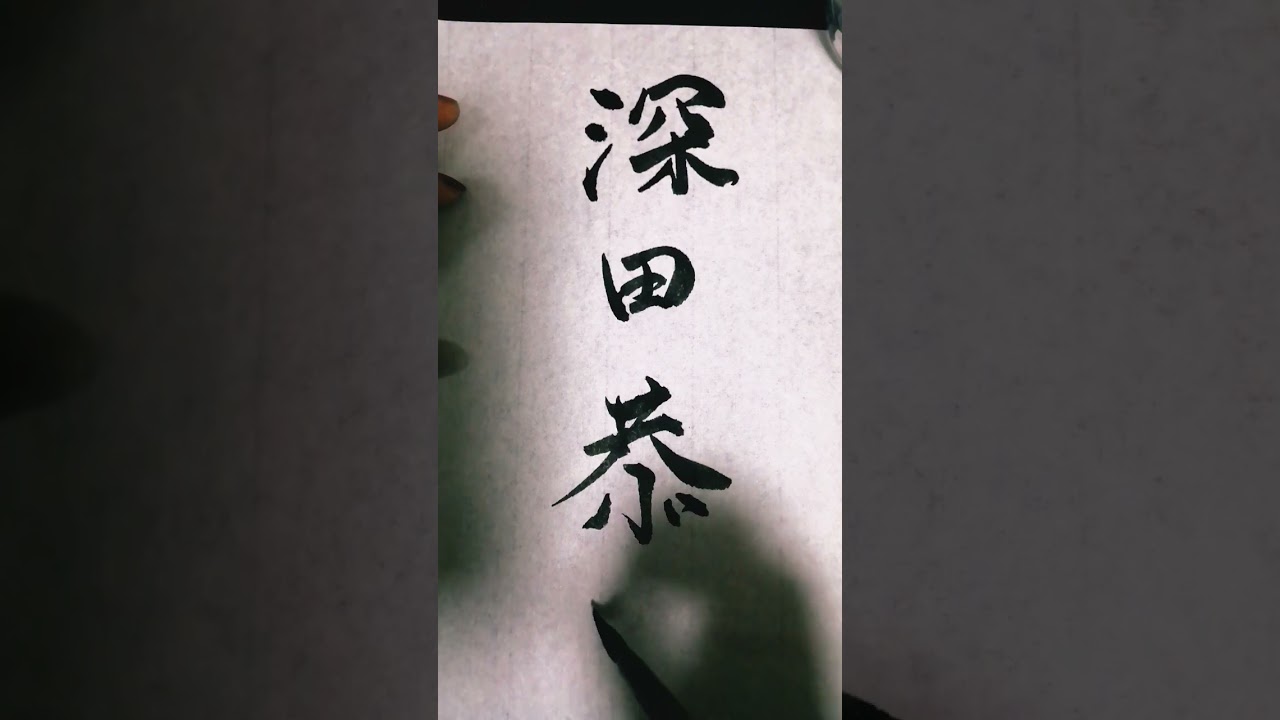 深田恭